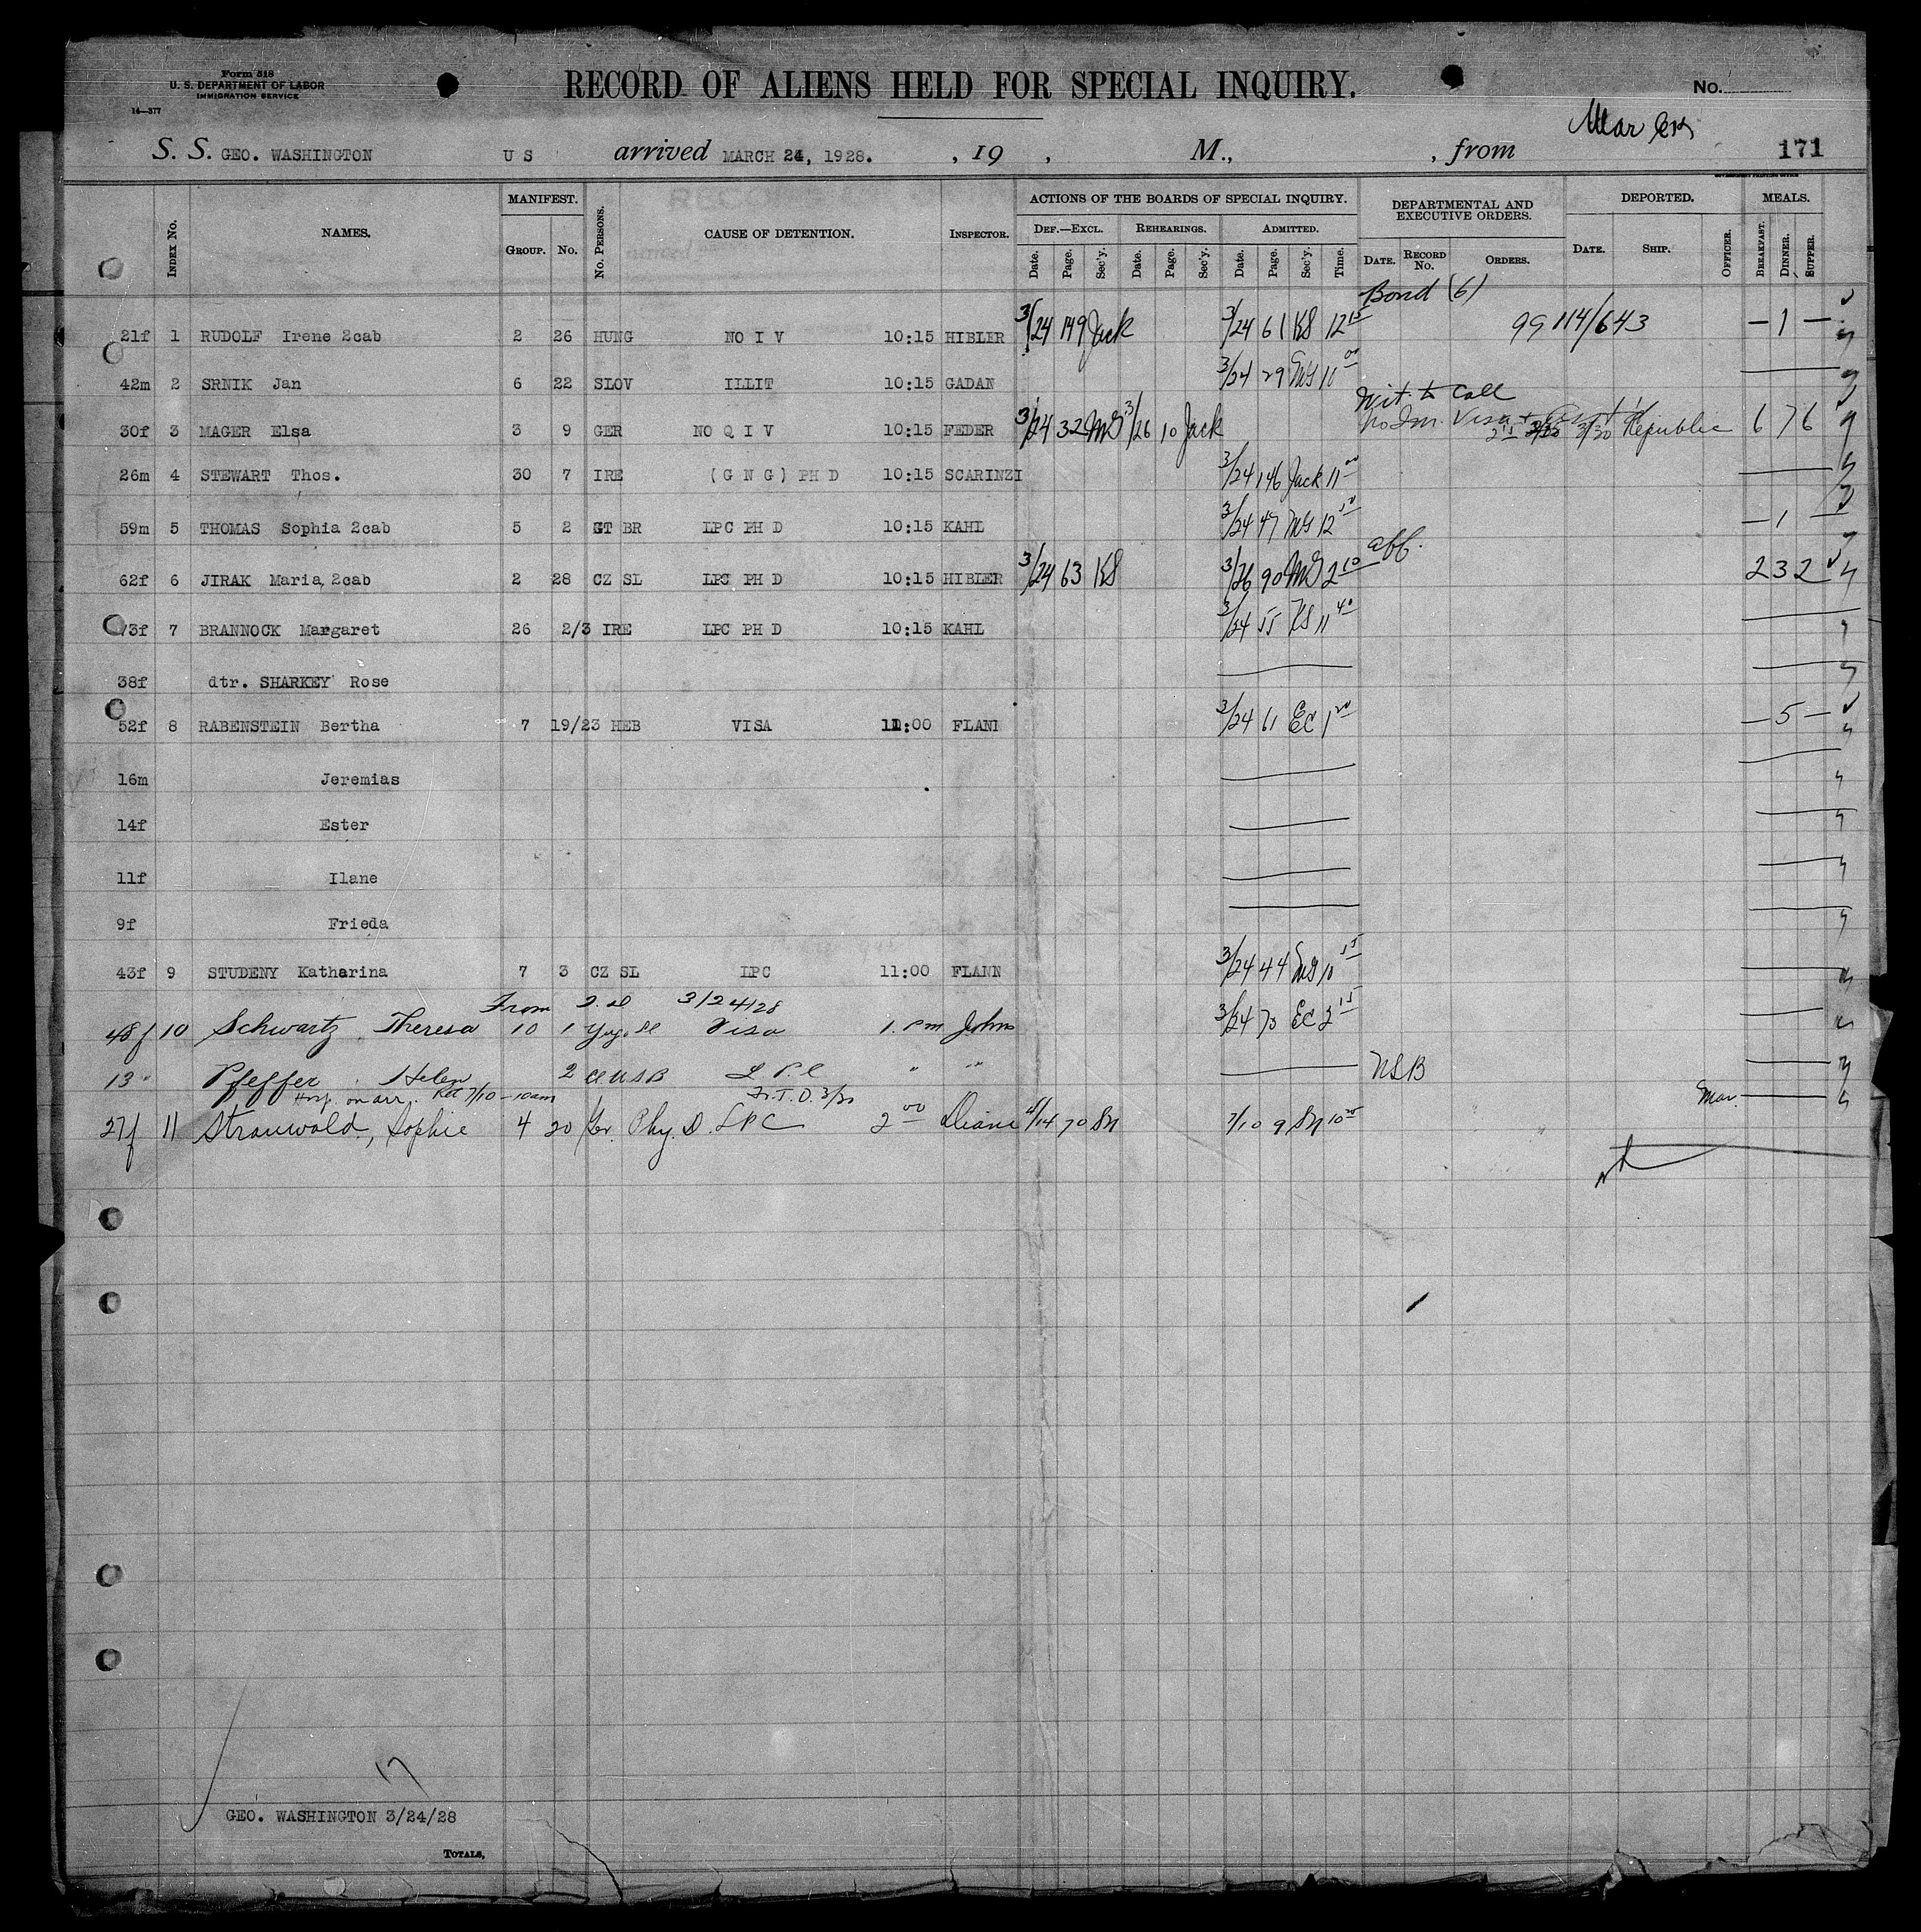 Form 518
U. S. DEPARTMENT OF LABOR
IMMIGRATION SERVICE
14—377
RECORD OF ALIENS HELD FOR SPECIAL INQUIRY.
No.
S. S. GEO. WASHINGTON U S arrived MARCH 24, 1928. , 19 , M., , from 171
GOVERNMENT PRINTING OFFICE
INDEX No. NAMES. MANIFEST. GROUP. No. No. PERSONS. CAUSE OF DETENTION. INSPECTOR. ACTIONS OF THE BOARDS OF SPECIAL INQUIRY. DEF.—EXCL. Date. Page. Sec'y. REHEARINGS. Date. Page. Sec'y. ADMITTED. Date. Page. Sec'y. Time. DEPARTMENTAL AND EXECUTIVE ORDERS. DATE. RECORD No. ORDERS. DEPORTED. DATE. SHIP. OFFICER. MEALS. BREAKFAST. DINNER. SUPPER.
Bond (6)
21f 1 RUDOLF Irene 2cab 2 26 HUNG NO I V 10:15 HIBLER 3/24 149 Jack 3/24 61 KS 12 15 99 114/643 — 1 —
42m 2 SRNIK Jan 6 22 SLOV ILLIT 10:15 GADAN 3/24 29 MG 10 00
Wit. to Call
30f 3 MAGER Elsa 3 9 GER NO Q I V 10:15 FEDER 3/24 32 MG 3/26 10 Jack No Im. Visa 3/30 Republic 6 7 6
26m 4 STEWART Thos. 30 7 IRE (G N G) PH D 10:15 SCARINZI 3/24 146 Jack 11 00
59m 5 THOMAS Sophia 2cab 5 2 GT BR LPC PH D 10:15 KAHL 3/24 47 MG 12 — 1 —
aff.
62f 6 JIRAK Maria, 2cab 2 28 CZ SL LPC PH D 10:15 HIBLER 3/24 63 KS 3/26 90 MG 2 10 2 3 2
73f 7 BRANNOCK Margaret 26 2/3 IRE LPC PH D 10:15 KAHL 3/24 55 KS 11 40
38f dtr. SHARKEY Rose
52f 8 RABENSTEIN Bertha 7 19/23 HEB VISA 11:00 FLANI 3/24 61 EC 1 20 — 5 —
16m Jeremias
14f Ester
11f Ilane
9f Frieda
43f 9 STUDENY Katharina 7 3 CZ SL LPC 11:00 FLANN 3/24 44 MG 10 15
From 3/24/28
48f 10 Schwartz, Theresa 10 1 Visa 1. PM Johns 3/24 75 EC 2 15
13 " Pfeffer Helen 2 USB L P C " " USB
Hosp. on arr. 7/10 – 10am
27f 11 Strauwald, Sophie 4 20 Ger. Phy. D. LPC 2 00 70 7/10 9
17
GEO. WASHINGTON 3/24/28
TOTALS,